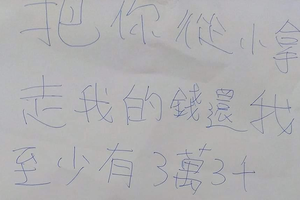 把你從小拿
走我的錢還我
至少有3萬3千